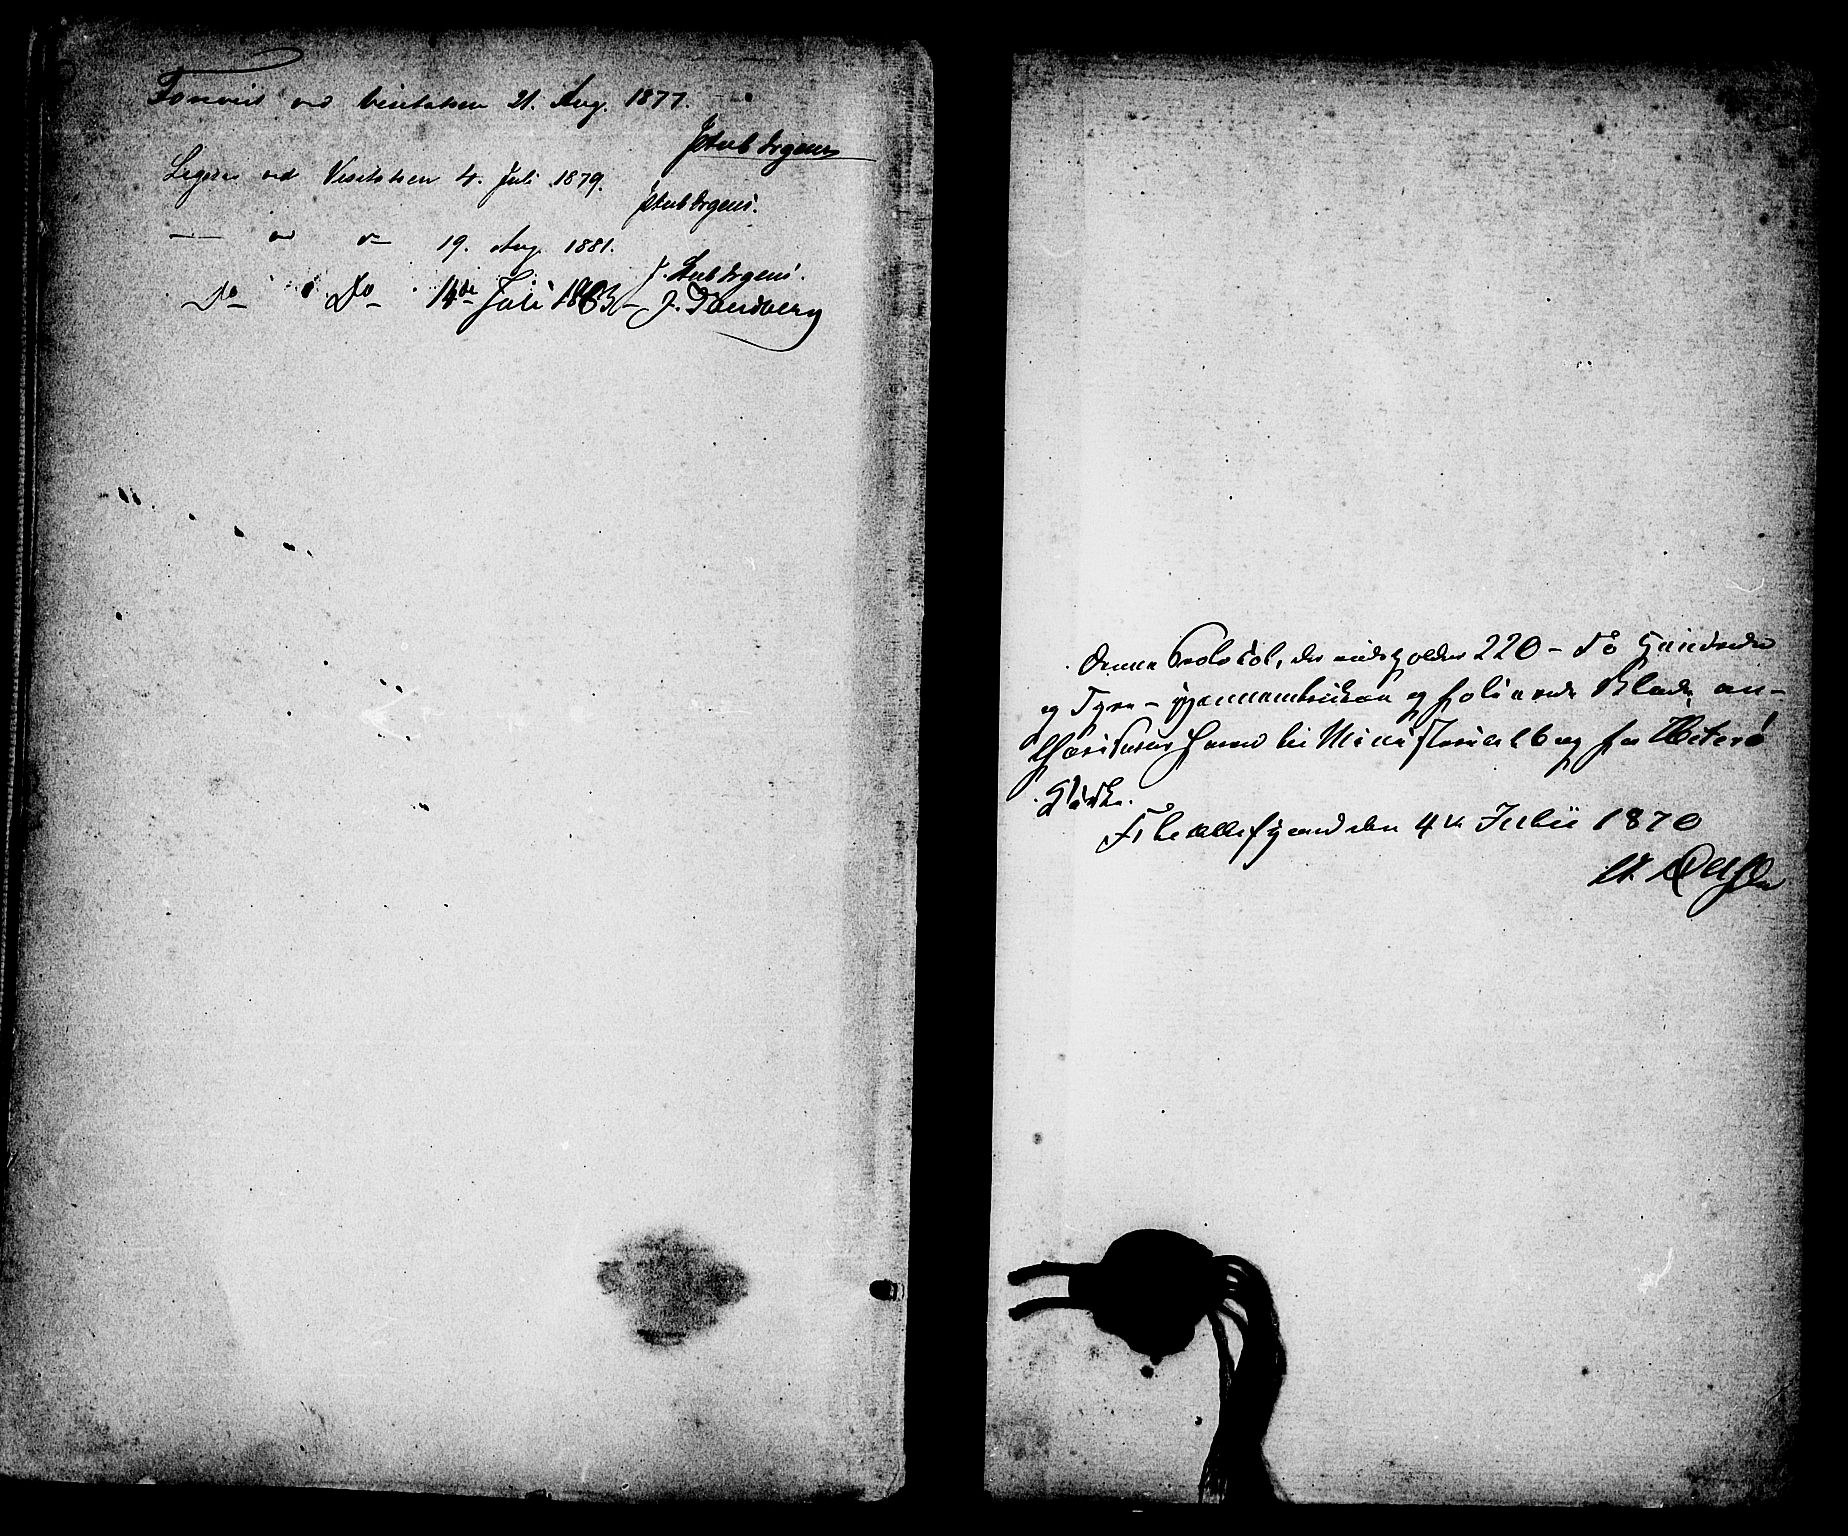 Forevist ved Visitatsen 21. Aug. 1877.
J Stub Irgens
Ligesaa ved Visitatsen 4. Juli 1879.
J Stub Irgens.
— ved do 19. Aug. 1881.
J. Stub Irgens.
Do Do 14de Juli 1883 – J. Tandberg
Denne Protokol, der indeholder 220 – To Hundrede
og Tyve – igjennemtrukne og folierede Blade, au-
thoriseres herved til Ministerialbog for Hiterø
Kirke.
Flekkefjord den 4de Julii 1870